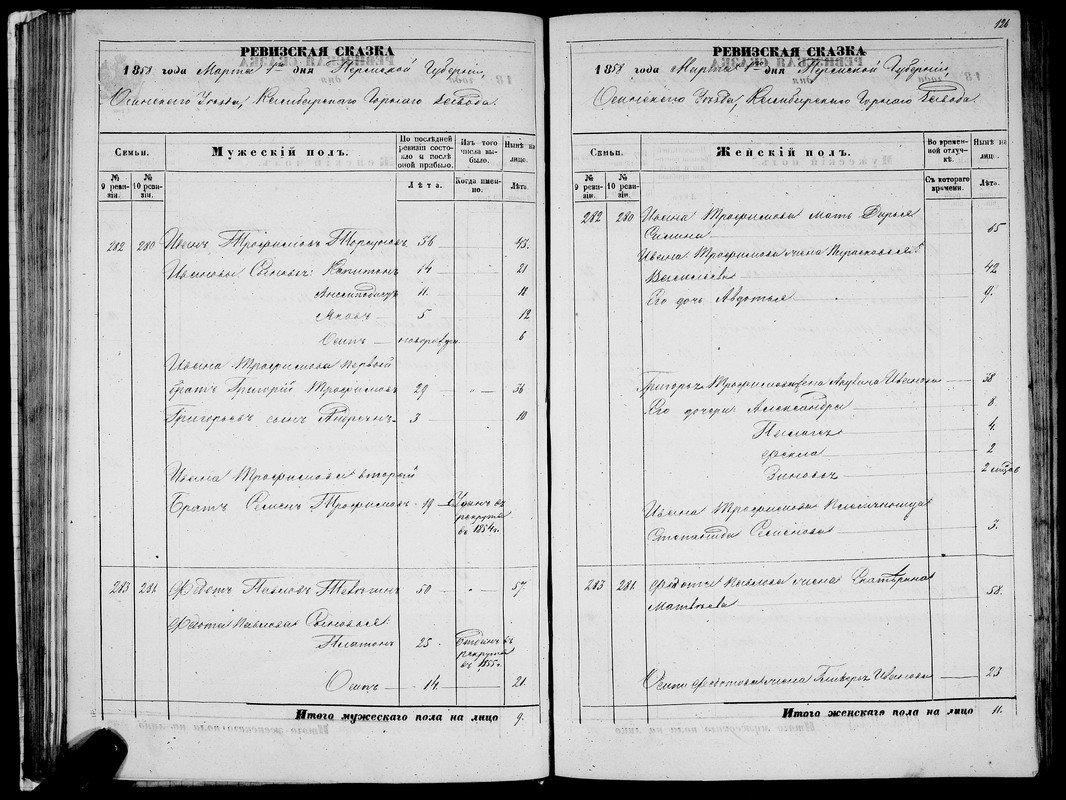 РЕВИЗСКАЯ СКАЗКА
1858 года Марта 1го дня Пермской Губерніи,
Осинскаго Уѣзда, Камбарскаго Горнаго Завода.
Семьи.
№ 9 ревизіи.
№ 10 ревизіи.
Мужескій полъ.
По послѣдней ревизіи состояло и послѣ оной прибыло.
Изъ того числа выбыло.
Нынѣ на лицо.
Лѣта.
Когда именно.
Лѣта.
282 280 Иванъ Трофимовъ 36 43.
Ивановы Сыновья: Капитонъ 14 21
11. 18
Яковъ 5 12
Осипъ новорожден. 6
Ивана Трофимова первый
братъ Григорій Трофимовъ 29 36
Григорьевъ сынъ Андреянъ 3 10
Ивана Трофимова второй
братъ Семенъ Трофимовъ 19 Отданъ въ
рекруты
въ 1854 г.
283 281 Федотъ Павловъ 50 57.
Федота Павлова Сыновья:
Платонъ 25 Отданъ въ
рекруты
въ 1855 г.
Осипъ 14. 21.
Итого мужескаго пола на лицо 9.
126
РЕВИЗСКАЯ СКАЗКА
1858 года Марта 1го дня Пермской Губерніи,
Осинскаго Уѣзда, Камбарскаго Горнаго Завода.
Семьи.
№ 9 ревизіи.
№ 10 ревизіи.
Женскій полъ.
Во временной отлучкѣ.
Нынѣ на лицо.
Съ котораго времени.
Лѣта.
282 280 Ивана Трофимова мать Дарья
65
Ивана Трофимова жена Парасковья
Васильева 42
Его дочь Авдотья 9.
Григорья Трофимова жена Иванова 38
Его дочери: Александра 8.
Пелагея 4.
Фекла 2
Зиновья 2 мѣсяц.
Ивана Трофимова племянница
Степанида Семенова 3.
283 281. Федота Павлова жена Екатерина
Матвѣева 58.
Осипа Федотова жена Иванова 23
Итого женскаго пола на лицо 11.